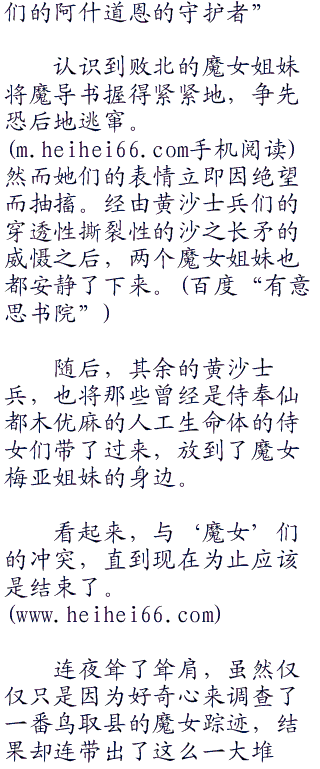 们的阿什道恩的守护者”
认识到败北的魔女姐妹
将魔导书握得紧紧地，争先
恐后地逃窜。
(m.heihei66.com手机阅读)
然而她们的表情立即因绝望
而抽搐。经由黄沙士兵们的
穿透性撕裂性的沙之长矛的
威慑之后，两个魔女姐妹也
都安静了下来。(百度“有意
思书院”)
随后，其余的黄沙士
兵，也将那些曾经是侍奉仙
都木优麻的人工生命体的侍
女们带了过来，放到了魔女
梅亚姐妹的身边。
看起来，与‘魔女’们
的冲突，直到现在为止应该
是结束了。
(www.heihei66.com)
连夜耸了耸肩，虽然仅
仅只是因为好奇心来调查了
一番鸟取县的魔女踪迹，结
果却连带出了这么一大堆